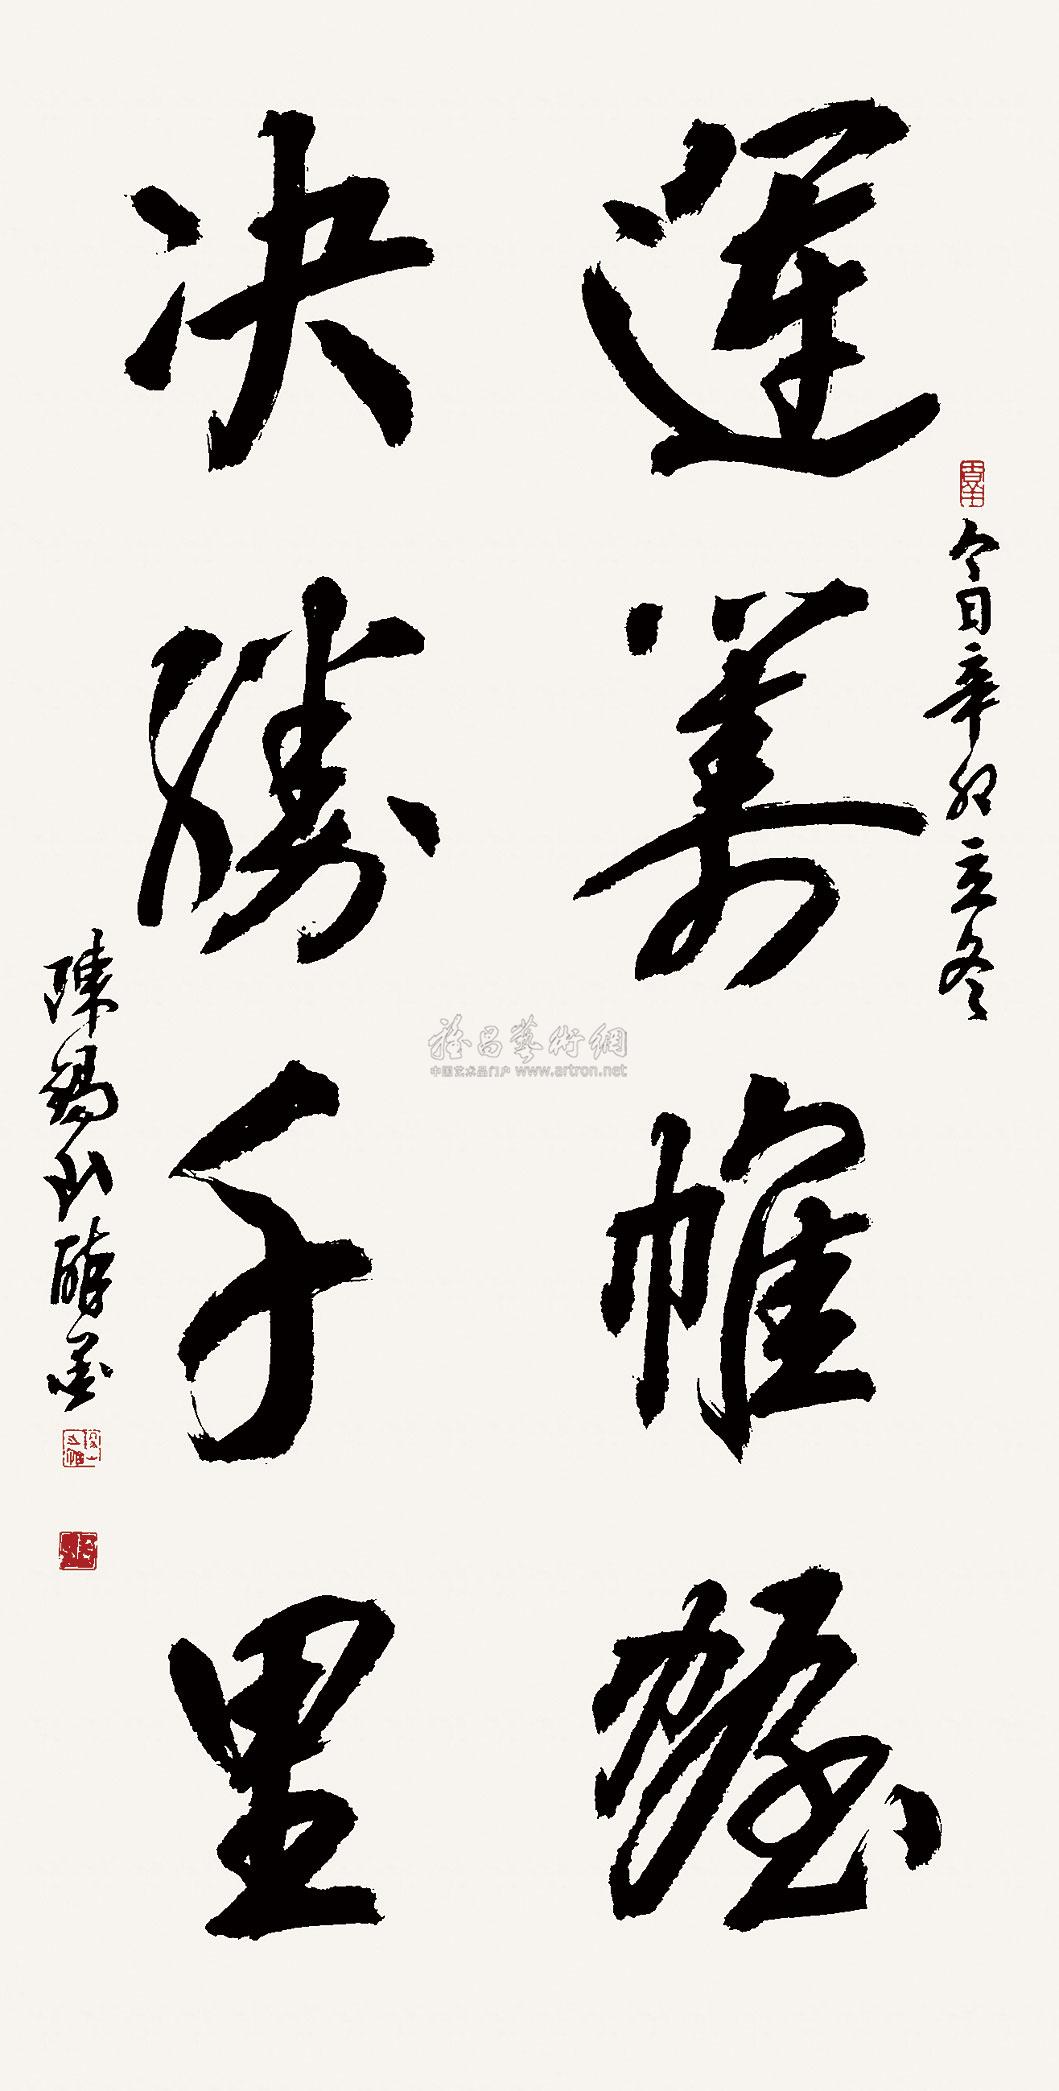 今日辛卯立冬
運籌帷幄
决勝千里
陳錫山醉墨
雅昌藝術網
中国艺术品门户 www.artron.net